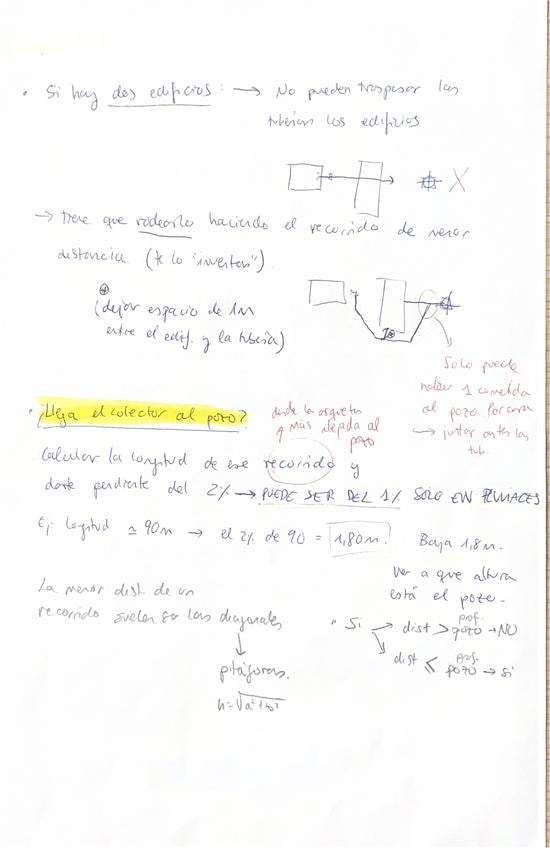 • Si hay dos edificios: → No pueden traspasar las
tuberías los edificios
X
→ tiene que rodearlo haciendo el recorrido de menor
distancia (te lo "inventas").
(dejar espacio de 1m
entre el edif. y la tubería)
1m
Solo puede
haber 1 acometida
al pozo por cara
→ juntar antes las
tub.
• ¿Llega el colector al pozo?
desde la arqueta
más alejada al
pozo
Calcular la longitud de ese recorrido y
darle pendiente del 2% → PUEDE SER DEL 1% SOLO EN PLUVIALES
Ej: longitud ≃ 90m → el 2% de 90 = 1,80m. Baja 1,8m.
Ver a que altura
está el pozo.
La menor dist. de un
recorrido suelen ser las diagonales
↓
pitágoras.
• Si → dist > prof. pozo → NO
dist ≤ prof. pozo → si